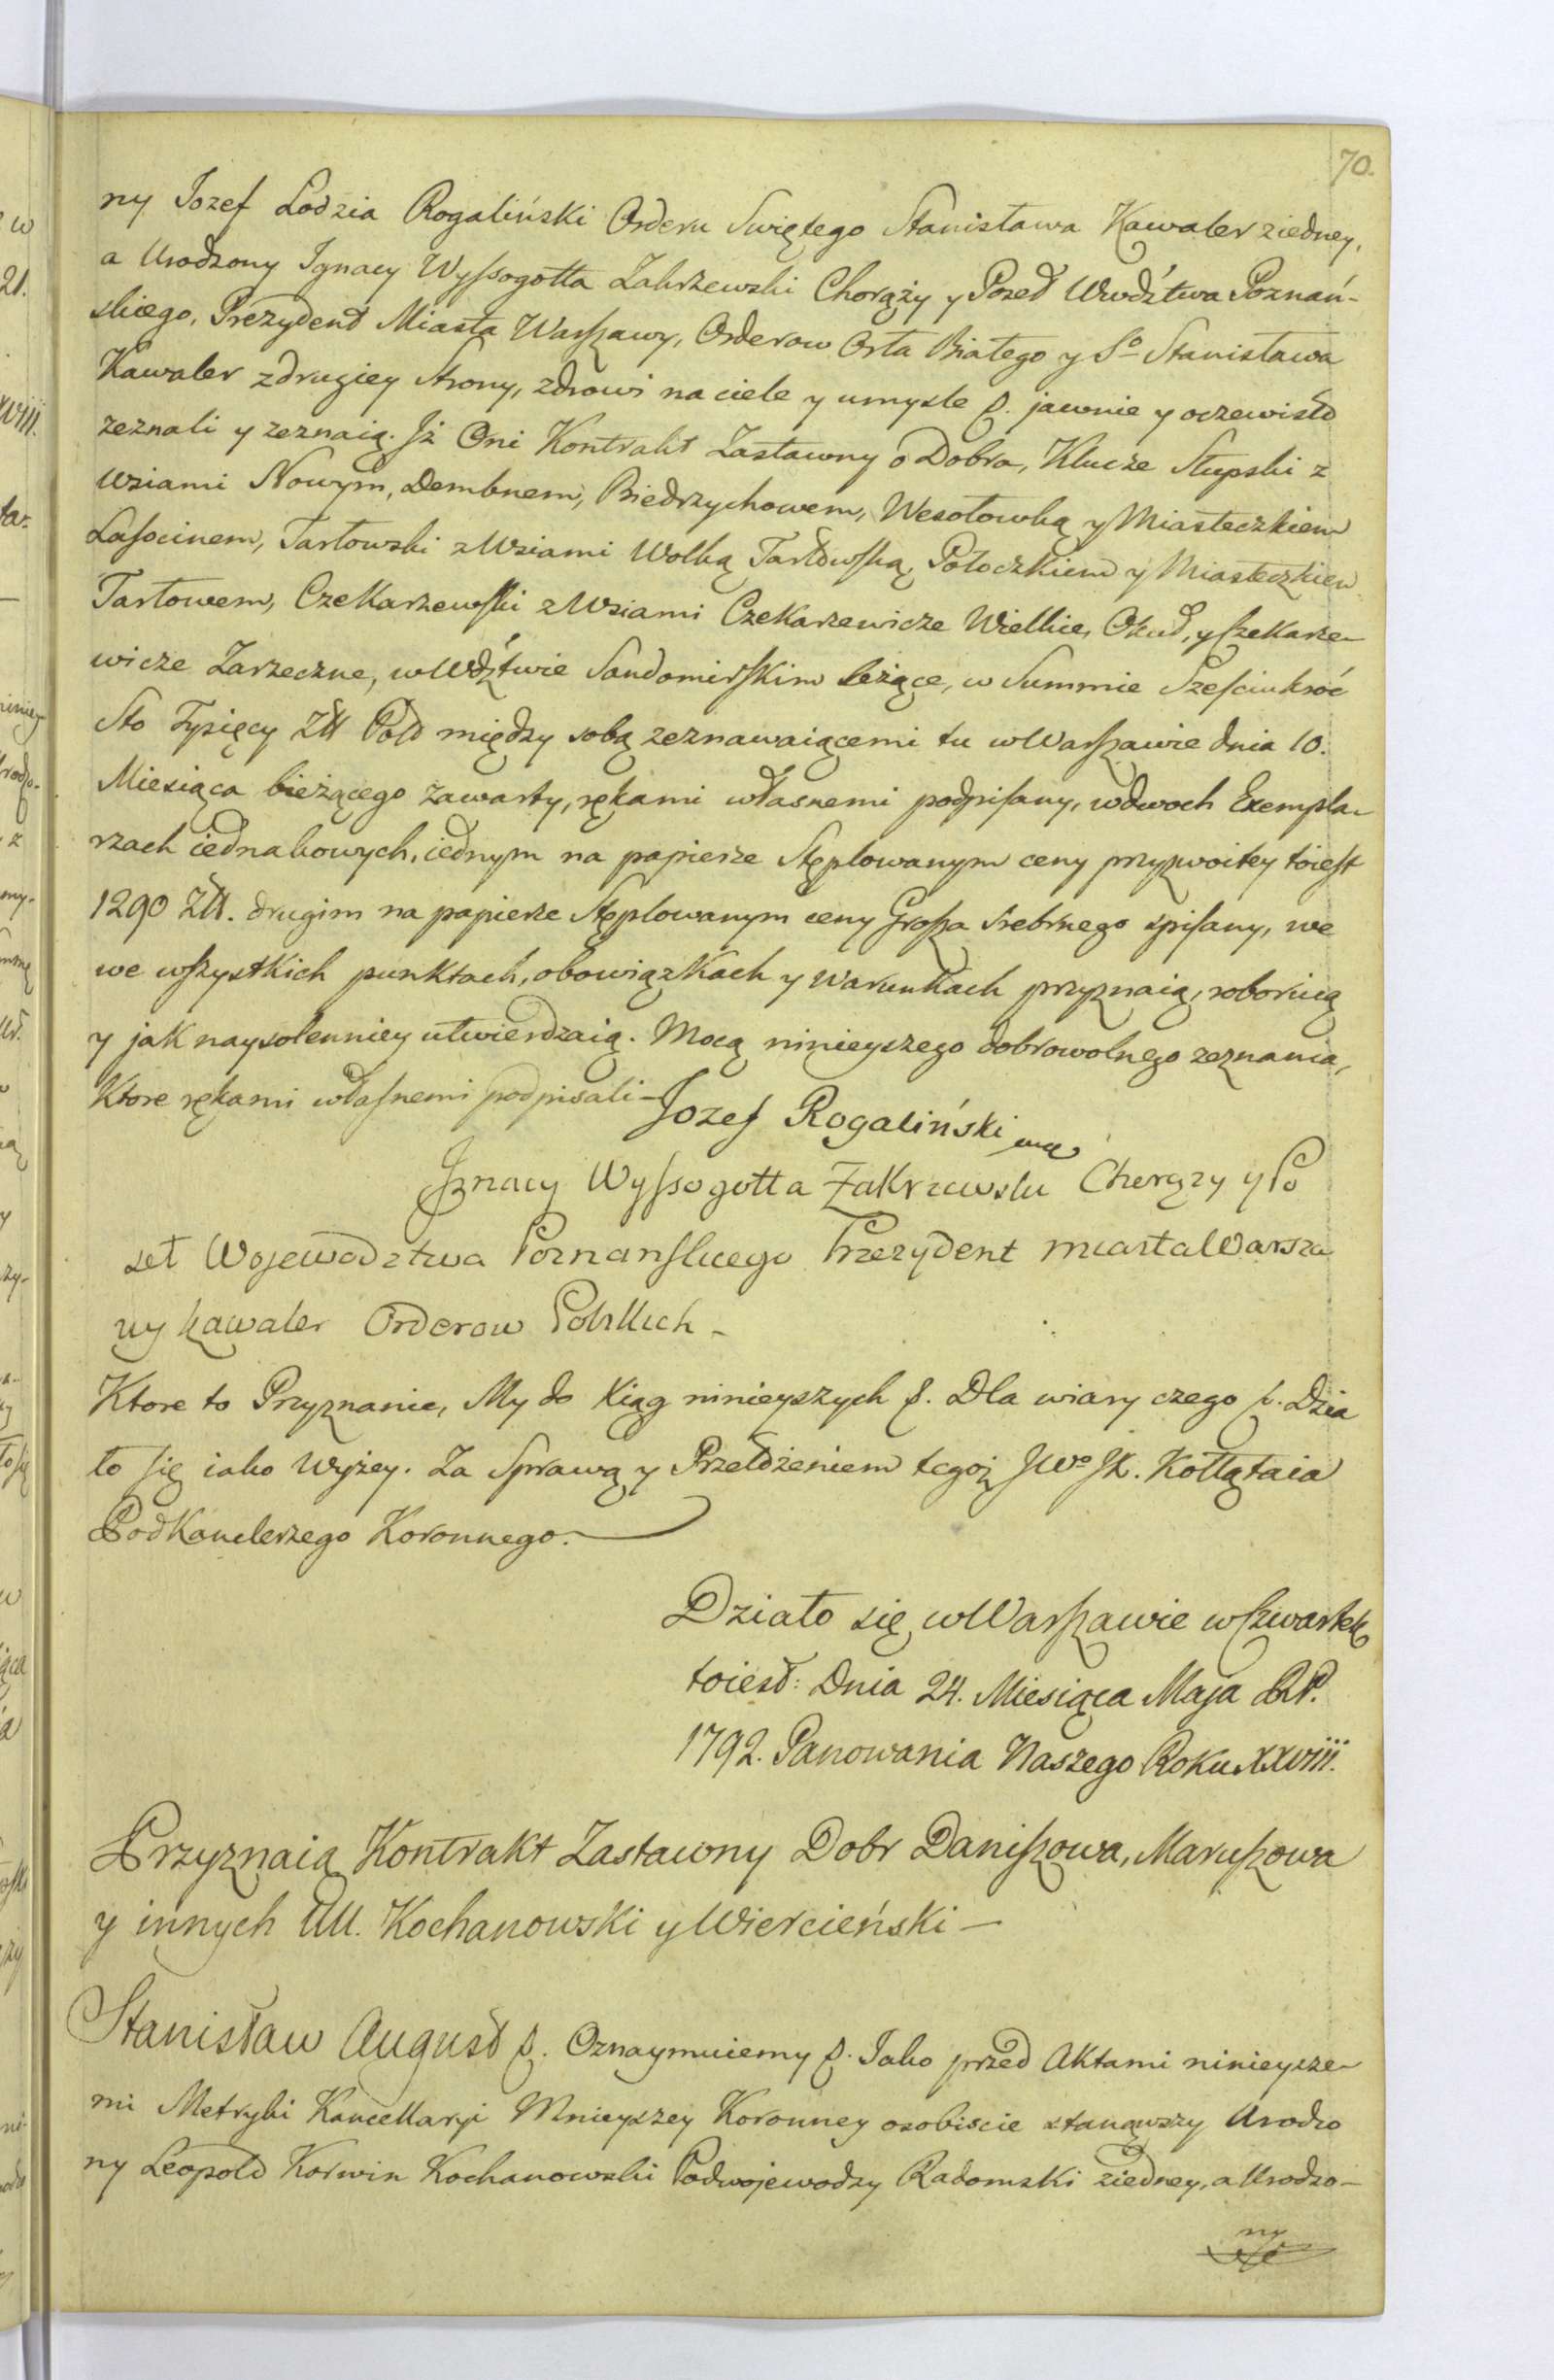 70.
ny Jozef Lodzia Rogaliński Orderu Swiętego Stanisława Kawaler ziedney,
a Urodzony Ignacy Wyssogotta Zakrzewski Chorąży y Poseł Wwdztwa Poznań-
skiego, Prezydent Miasta Warszawy, Orderow Orła Białego y Sº Stanisława
Kawaler zdrugiey Strony, zdrowi na ciele y umysle p. jawnie y oczewisto
zeznali y zeznaią. Iż Oni Kontrakt Zastawny o Dobra, Klucze Słupski z
Wsiami Nowym, Dembnem, Biedrzychowem, Wesołowką y Miasteczkiem
Lasocinem, Tarłowski z Wsiami Wolką Tarłowską, Potoczkiem y Miasteczkiem
Tarłowem, Czekarzewski z Wsiami Czekarzewicze Wielkie, Okuł, y Czekarze-
wicze Zarzeczne, w Wdztwie Sandomirskim leżące, w Summie Szesciukroć
Sto Tysięcy Złł Pols między sobą zeznawaiącemi tu w Warszawie dnia 10.
Miesiąca bieżącego zawarty, rękami własnemi podpisany, wdwoch Exempla-
rzach iednakowych, iednym na papierze Stęplowanym ceny przyzwoitey toiest
1290 Złł. drugim na papierze Stęplowanym ceny Grosza Srebrnego spisany, we
we wszystkich punktach, obowiązkach y warunkach przyznaią, roboruią
y jak naysolenniey utwierdzaią. Mocą ninieyszego dobrowolnego zeznania,
Ktore rękami własnemi podpisali –
Jozef Rogaliński mp
Ignacy Wyssogotta Zakrzewski Chorązy y Po
seł Wojewodztwa Poznanskiego Prezydent miasta Warsza
wy kawaler Orderow Polskich –
Ktore to Przyznanie, My do Xiąg ninieyszych p. Dla wiary czego p. Dzia
ło się iako Wyżey. Za Sprawą y Przełożeniem tegoż JWº JX. Kołłątaia
Podkanclerzego Koronnego.
Działo się w Warszawie w Czwartek
toiest: Dnia 24. Miesiąca Maja RP.
1792. Panowania Naszego Roku XXVIII.
Przyznaią Kontrakt Zastawny Dobr Daniszowa, Maruszowa
y innych UU. Kochanowski y Wiercieński –
Stanisław August p. Oznaymuiemy p. Iako przed Aktami ninieysze-
mi Metryki Kancellaryi Mnieyszey Koronney osobiscie stanąwszy Urodzo
ny Leopold Korwin Kochanowski Podwojewodzy Radomski ziedney, a Urodzo-
ny